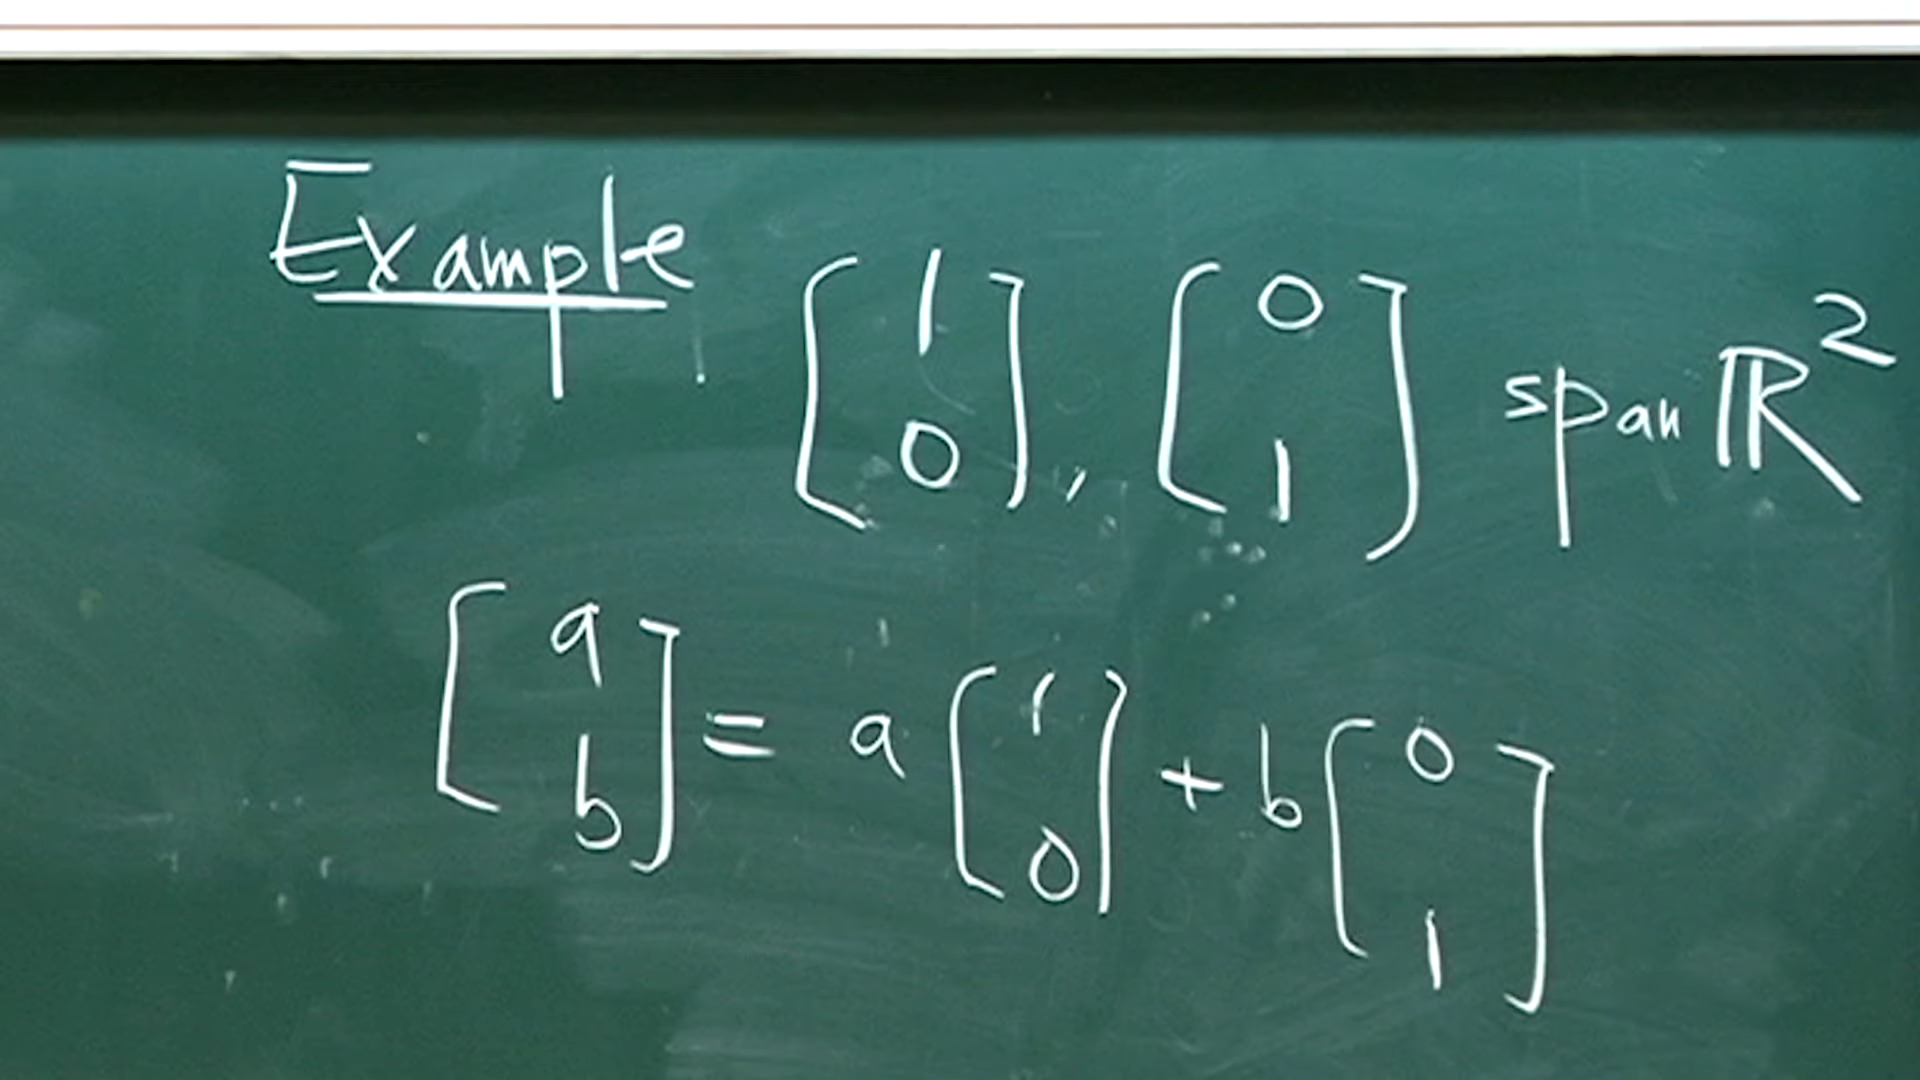 Example [1 0], [0 1] span ℝ²
[a b] = a [1 0] + b [0 1]